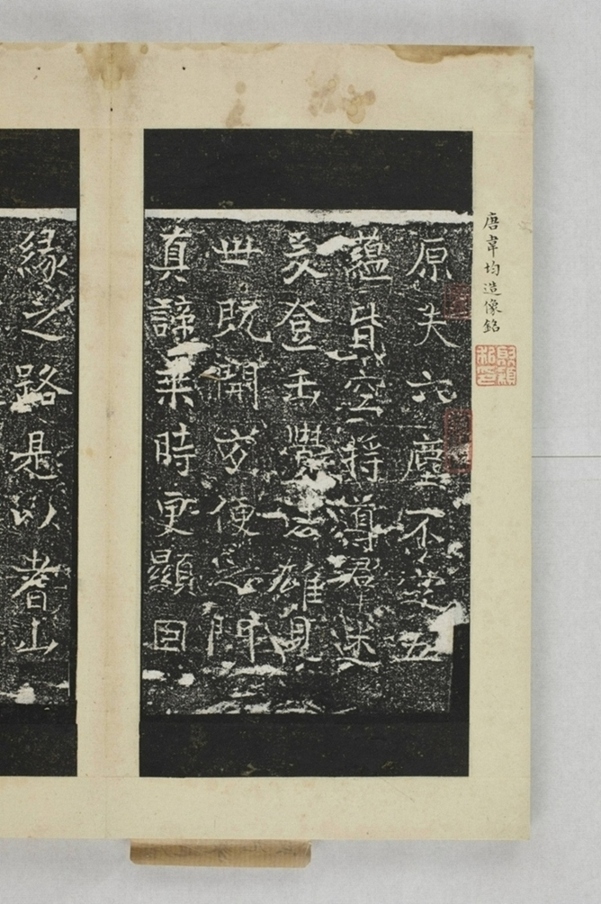 唐韋均造像銘
原夫六塵不五
蘊皆空將導群迷
爰登正覺大雄見
世既開方便之門
真諦乘時更顯因
緣之路是以耆山